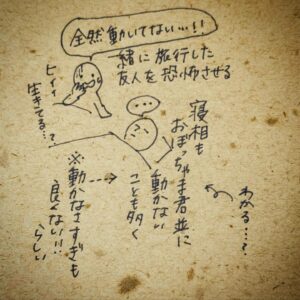 全然動いてない…!!
一緒に旅行した
友人を恐怖させる
ヒィィ
生きてる…?
…
寝相も
おぼっちゃま君並に
動かない
ことも多く
わかる…?
※動かなさすぎも
良くない!!!
らしい